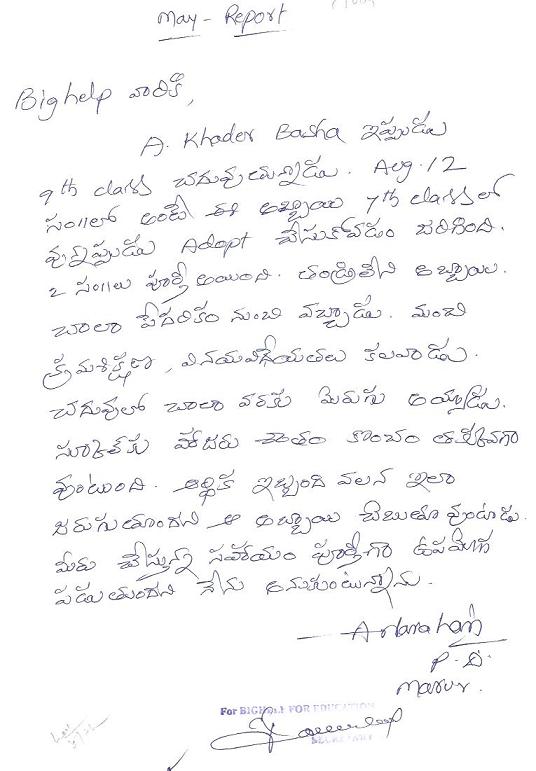 May - Report
Big help వారికి,
A. Khader Basha ఇప్పుడు
9th class చదువుతున్నాడు. Aug.12
సం॥లో అంటే ఈ అబ్బాయి 7th class లో
వున్నప్పుడు Adopt చేసుకోవడం జరిగింది.
2 సం॥లు పూర్తి అయింది. తండ్రిలేని అబ్బాయి.
చాలా పేదరికం నుంచి వచ్చాడు. మంచి
క్రమశిక్షణ, వినయవిధేయతలు కలవాడు.
చదువులో చాలా వరకు మెరుగు అయ్యాడు.
స్కూల్‌కు హాజరు శాతం కొంచం తక్కువగా
వుంటుంది. ఆర్థిక ఇబ్బంది వలన ఇలా
జరుగుతూందని ఆ అబ్బాయి చెబుతూ వుంటాడు.
మీరు చేస్తున్న సహాయం పూర్తిగా ఉపయోగ
పడుతుందని నేను అనుకుంటున్నాను.
P.D.
Marur.
For BIGHELP FOR EDUCATION
SECRETARY